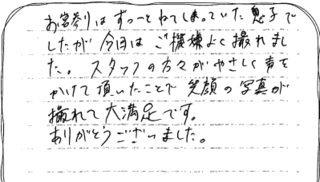 お宮参りはずっとねてしまっていた息子で
したが今日はご機嫌よく撮れまし
た。スタッフの方々がやさしく声を
かけて頂いたことで笑顔の写真が
撮れて大満足です。
ありがとうございました。